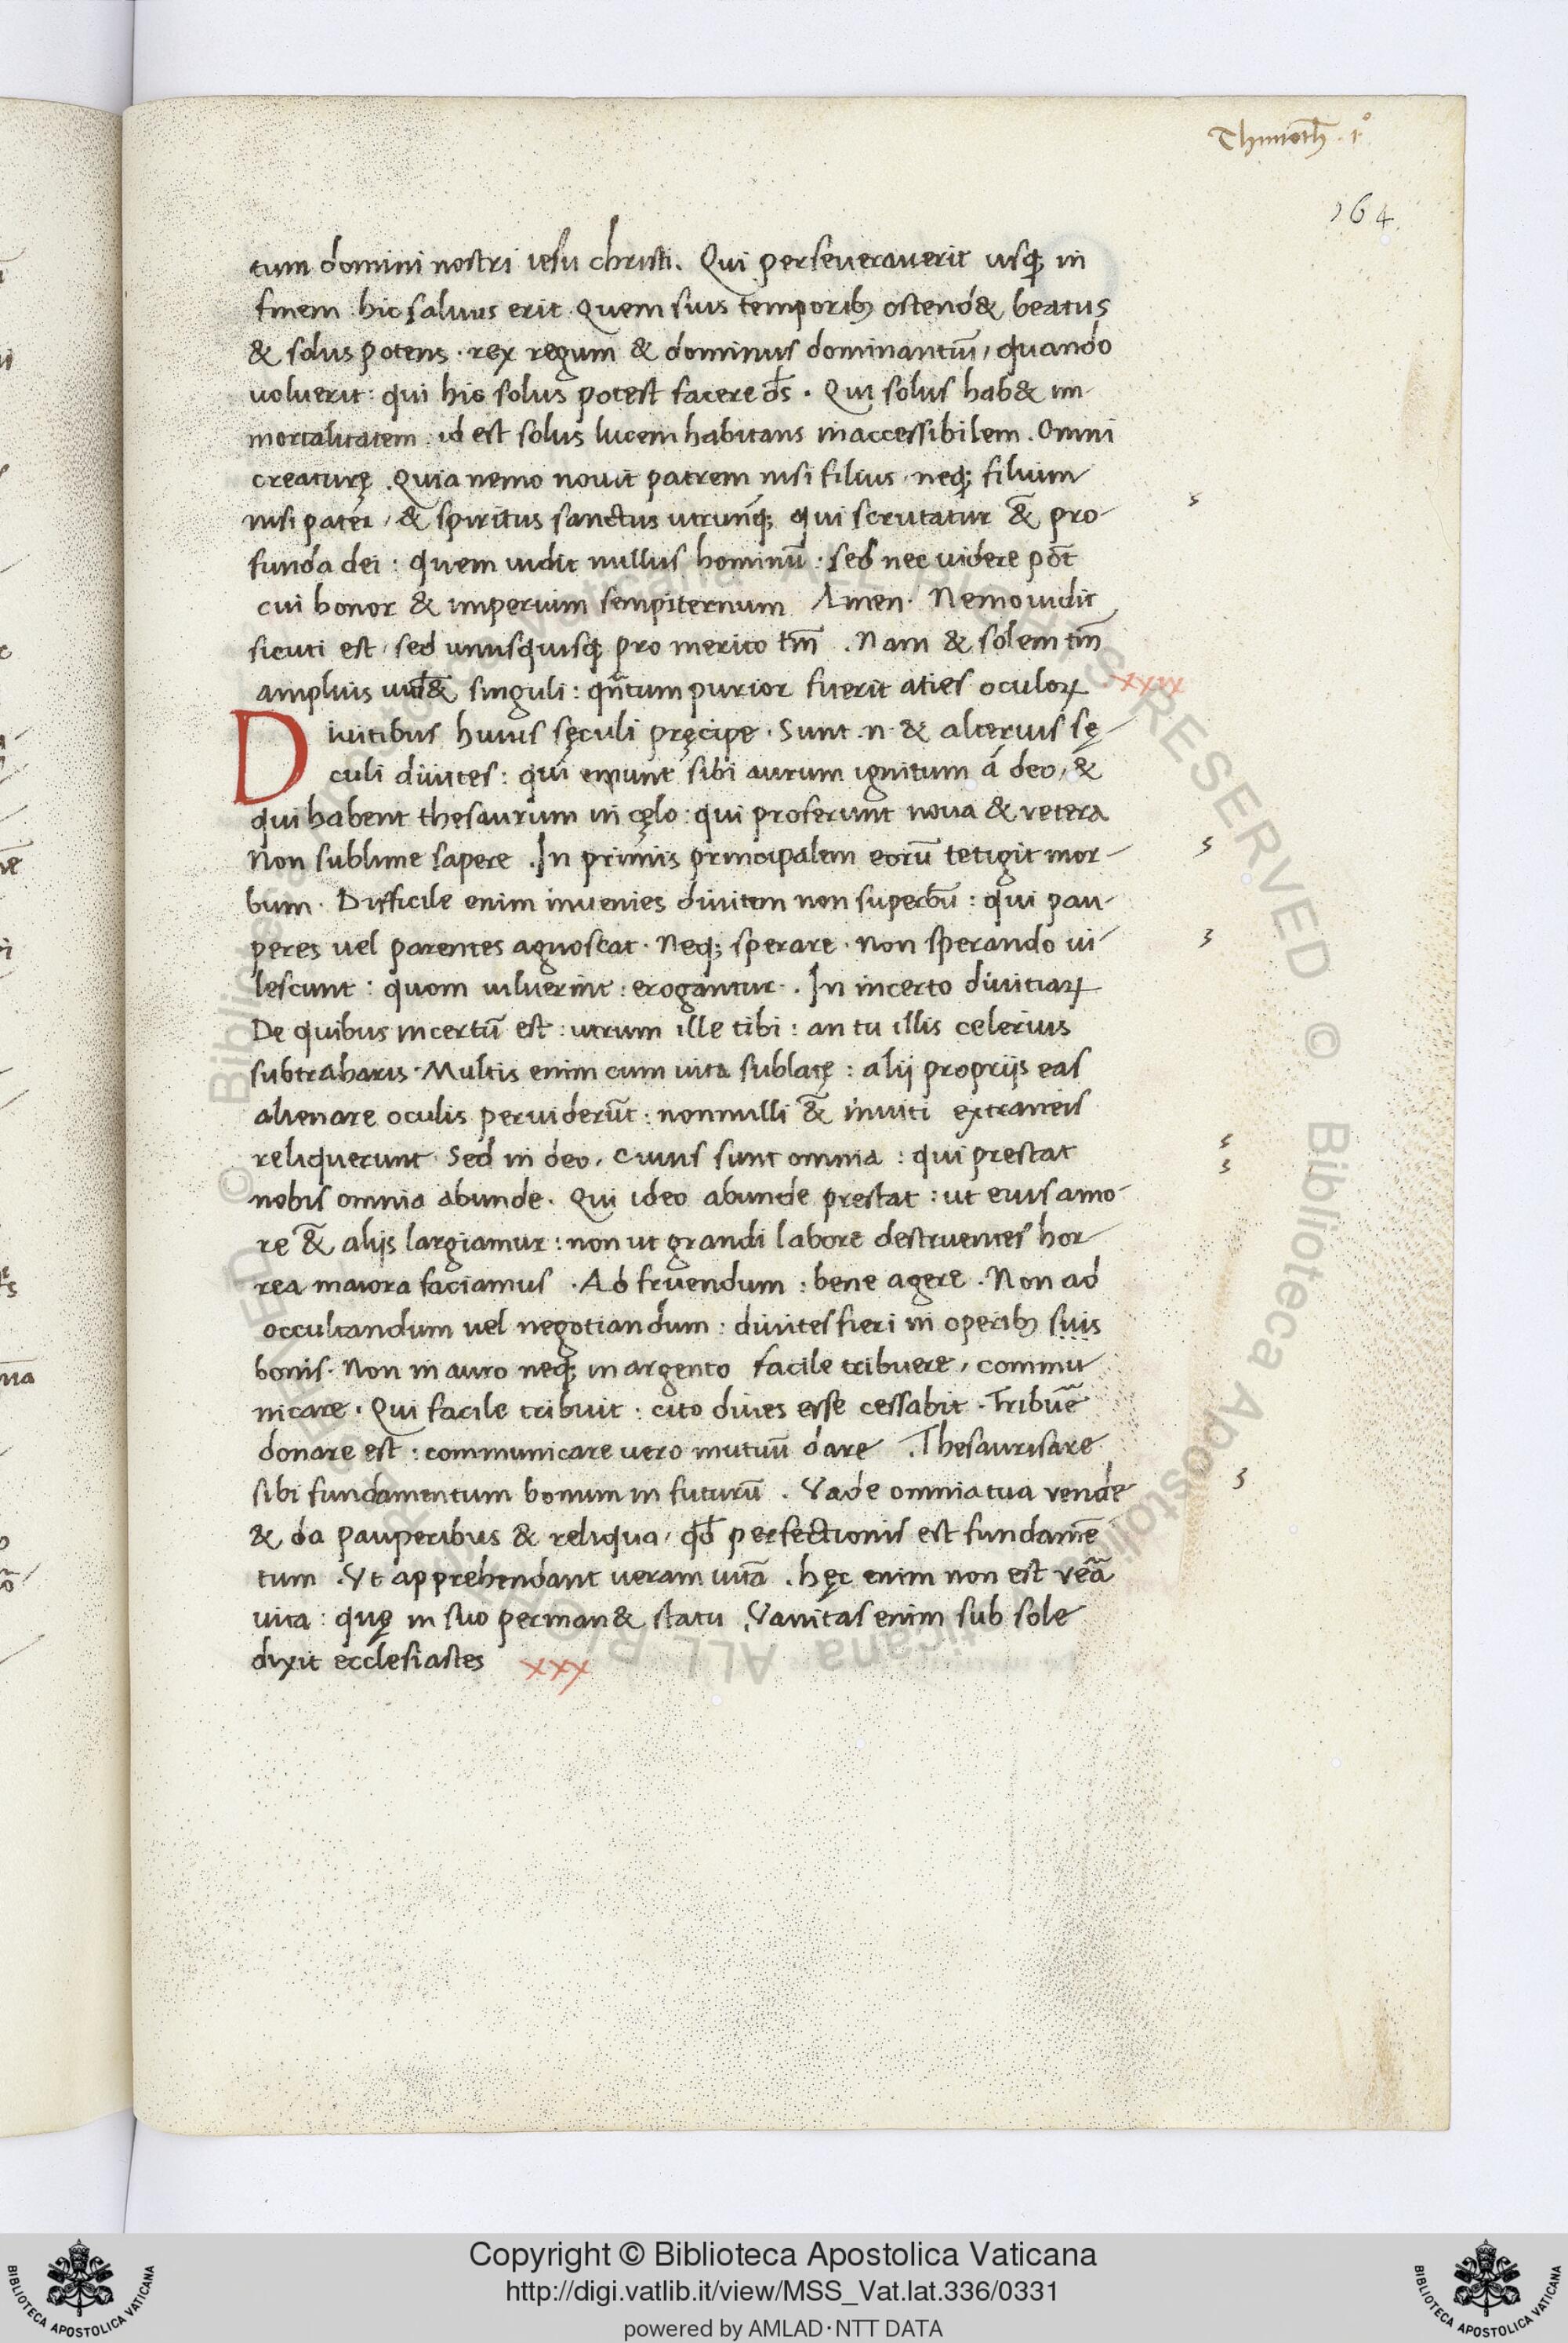 Thimoth̄ · 1°
164
tum domini nostri iesu christi. Qui perseuerauerit usq; in
finem hic saluus erit. Quem suis temporib; ostend& beatus
& solus potens · rex regum & dominus dominantiū, quando
uoluerit : qui hic solus potest facere
 Qui solus hab& im
mortalitatem : id est solus lucem habitans inaccessibilem . Omni
creaturę . Quia nemo nouit patrem nisi filius , neq; filium
nisi pater , & spiritus sanctus utrunq; qui scrutatur &̄ pro-
funda dei : quem uidit nullus hominū · sed nec videre pōt
cui honor & imperium sempiternum Amen · Nemo uidit
sicuti est , sed unusquisq; pro merito tm̄ . Nam & solem tm̄
amplius uid& singuli : qn̄tum purior fuerit aties oculoꝝ xxix
Diuitibus huius sęculi pręcipe · Sunt .n. & alterius sę-
culi diuites : qui emunt sibi aurum ignitum á deo , &
qui habent thesaurum in cęlo : qui proferunt noua & vetera
Non sublime sapere . In primis principalem eorū tetigit mor-
bum · Difficile enim inuenies diuitem non superbū : qui pau-
peres uel parentes agnoscat · Neq; sperare · Non sperando ui-
lescunt : quom uiluerint : erogantur . In incerto diuitiaꝝ
De quibus incertū est : utrum ille tibi : an tu illis celerius
subtraharis · Multis enim cum uita sublatę : alij proprijs eas
alienare oculis peruiderūt : nonnulli &̄ inuiti extraneis
reliquerunt · Sed in deo , cuius sunt omnia : qui prestat
nobis omnia abunde . Qui ideo abunde prestat : ut eius amo-
re &̄ alijs largiamur : non ut grandi labore destruentes hor-
rea maiora faciamus . Ad fruendum : bene agere . Non ad
occultandum uel negotiandum : diuites fieri in operib; suis
bonis · Non in auro neq; in argento facile tribuere , commu
nicare · Qui facile tribuit : cito diues esse cessabit · Tribuē
donare est : communicare uero mutuū dare . Thesaurisare
sibi fundamentum bonum in futurū . Vade omnia tua vende
& da pauperibus & reliqua , qd̄ perfectionis est fundamē
tum . Vt apprehendant ueram uitā . hęc enim non est veā
uita : quę in suo perman& statu . Vanitas enim sub sole
dixit ecclesiastes xxx
Copyright © Biblioteca Apostolica Vaticana
http://digi.vatlib.it/view/MSS_Vat.lat.336/0331
powered by AMLAD·NTT DATA
BIBLIOTECA APOSTOLICA VATICANA
BIBLIOTECA APOSTOLICA VATICANA